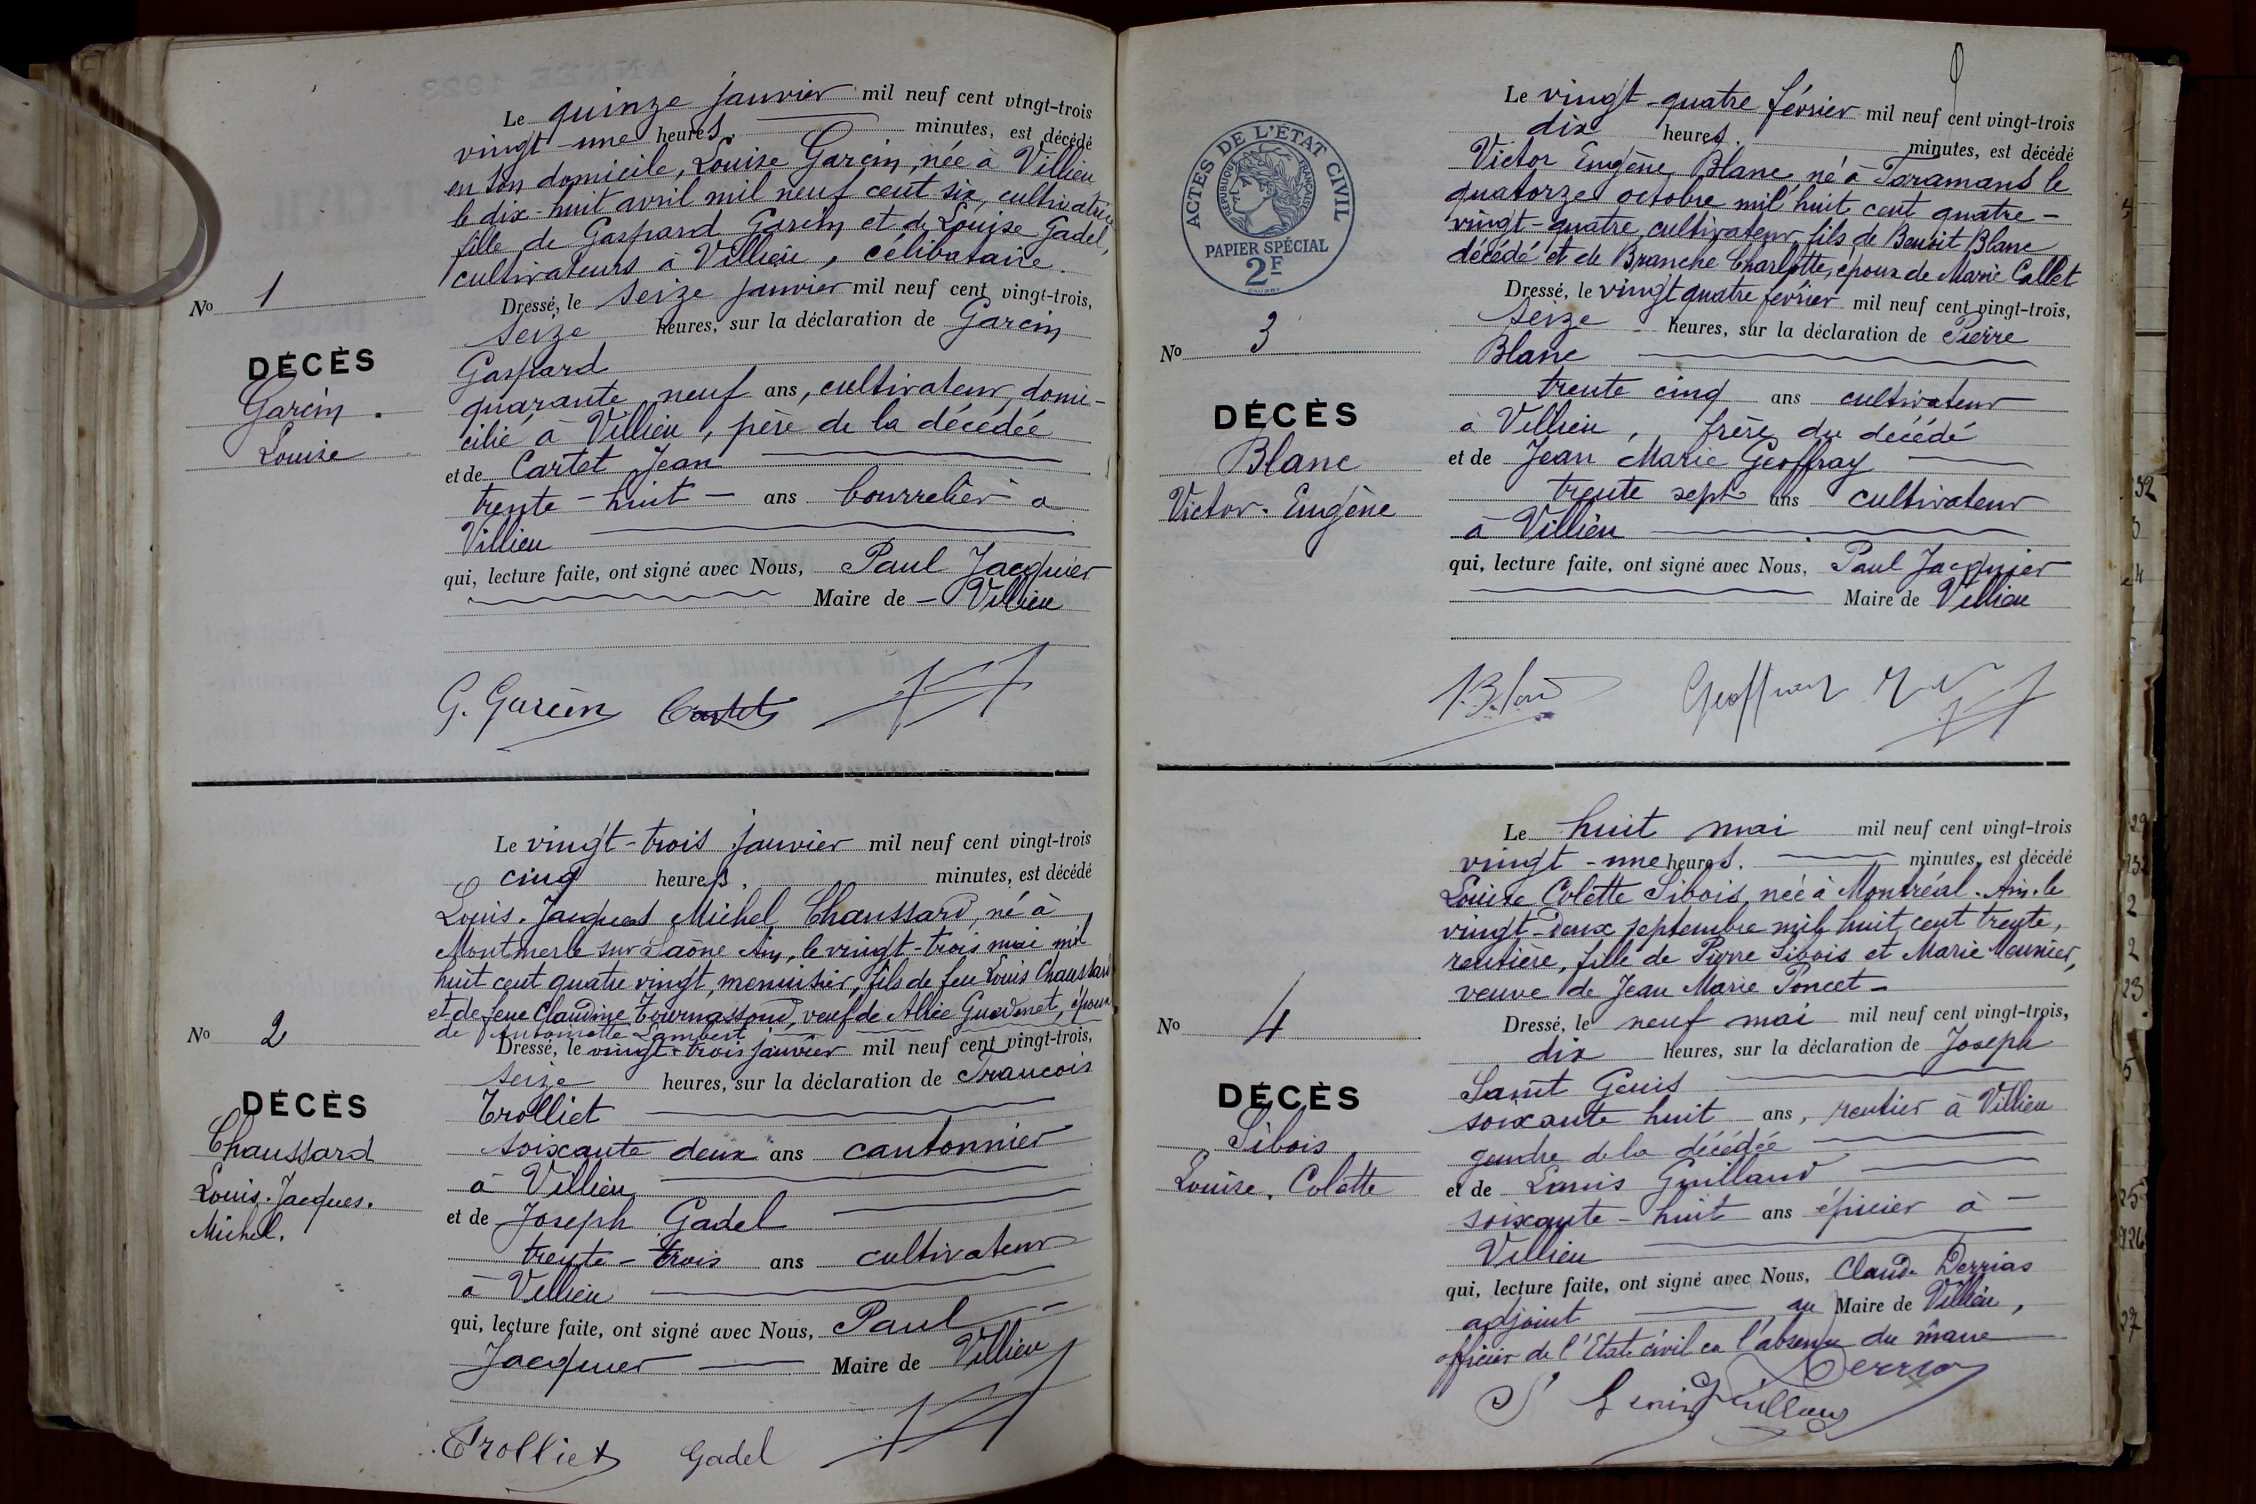 Le quinze janvier mil neuf cent vingt-trois
vingt-une heures. minutes, est décédé
en son domicile, Louise Garcin, née à Villieu
le dix-huit avril mil neuf cent six, cultivatrice
fille de Gaspard Garcin et de Louise Gadel,
cultivateurs à Villieu, célibataire.
No 1
Dressé, le seize janvier mil neuf cent vingt-trois,
seize heures, sur la déclaration de Garcin
Gaspard
DÉCÈS
Garcin.
Louise
quarante neuf ans, cultivateur, domi-
cilié à Villieu, père de la décédée
et de Cartet Jean
trente-huit - ans bourrelier à
Villieu
qui, lecture faite, ont signé avec Nous, Paul Jacquier
Maire de - Villieu
G. Garcin Cartet
Le vingt-trois janvier mil neuf cent vingt-trois
cinq heures, minutes, est décédé
Louis. Jacques Michel Chaussard, né à
Montmerle sur Saône Ain, le vingt-trois mai mil
huit cent quatre vingt, menuisier, fils de feu Louis Chaussard
et de feue Claudine Tournassoud, veuf de Alice époux
de Antoinette Lambert
No 2
Dressé, le vingt-trois janvier mil neuf cent vingt-trois,
seize heures, sur la déclaration de Francois
Trolliet
DÉCÈS
Chaussard
Louis. Jacques.
Michel.
soixante deux ans cantonnier
à Villieu
et de Joseph Gadel
trente-trois ans cultivateur
à Villieu
qui, lecture faite, ont signé avec Nous, Paul
Jacquier Maire de Villieu
Trolliet Gadel
Le vingt-quatre février mil neuf cent vingt-trois
dix heures. minutes, est décédé
Victor Eugène Blanc né à Faramans le
quatorze octobre mil huit cent quatre-
vingt-quatre, cultivateur, fils de Benoit Blanc
décédé et de Branche Charlotte, époux de Marie Callet
ACTES DE L'ÉTAT CIVIL
RÉPUBLIQUE FRANÇAISE
PAPIER SPÉCIAL
2F
No 3
Dressé, le vingt quatre février mil neuf cent vingt-trois,
seize heures, sur la déclaration de Pierre
Blanc
DÉCÈS
Blanc
Victor. Eugène
trente cinq ans cultivateur
à Villieu, frère du décédé
et de Jean Marie Geoffray
trente sept ans cultivateur
à Villieu
qui, lecture faite, ont signé avec Nous, Paul Jacquier
Maire de Villieu
Geoffray
Le huit mai mil neuf cent vingt-trois
vingt-une heures. minutes, est décédé
Louise Colette Sibois, née à Montréal. Ain. le
vingt-deux septembre mil huit cent trente,
rentière, fille de Pierre Sibois et Marie Meunier,
veuve de Jean Marie Poncet -
No 4
Dressé, le neuf mai mil neuf cent vingt-trois,
dix heures, sur la déclaration de Joseph
Saint Genis
DÉCÈS
Sibois
Louise. Colette
soixante huit ans, rentier à Villieu
gendre de la décédée
et de Louis Guilland
soixante-huit ans épicier à -
Villieu
qui, lecture faite, ont signé avec Nous, Claude Derrias
adjoint au Maire de Villieu,
officier de l'Etat civil en l'absence du maire
Derrias
St Genis Guilland